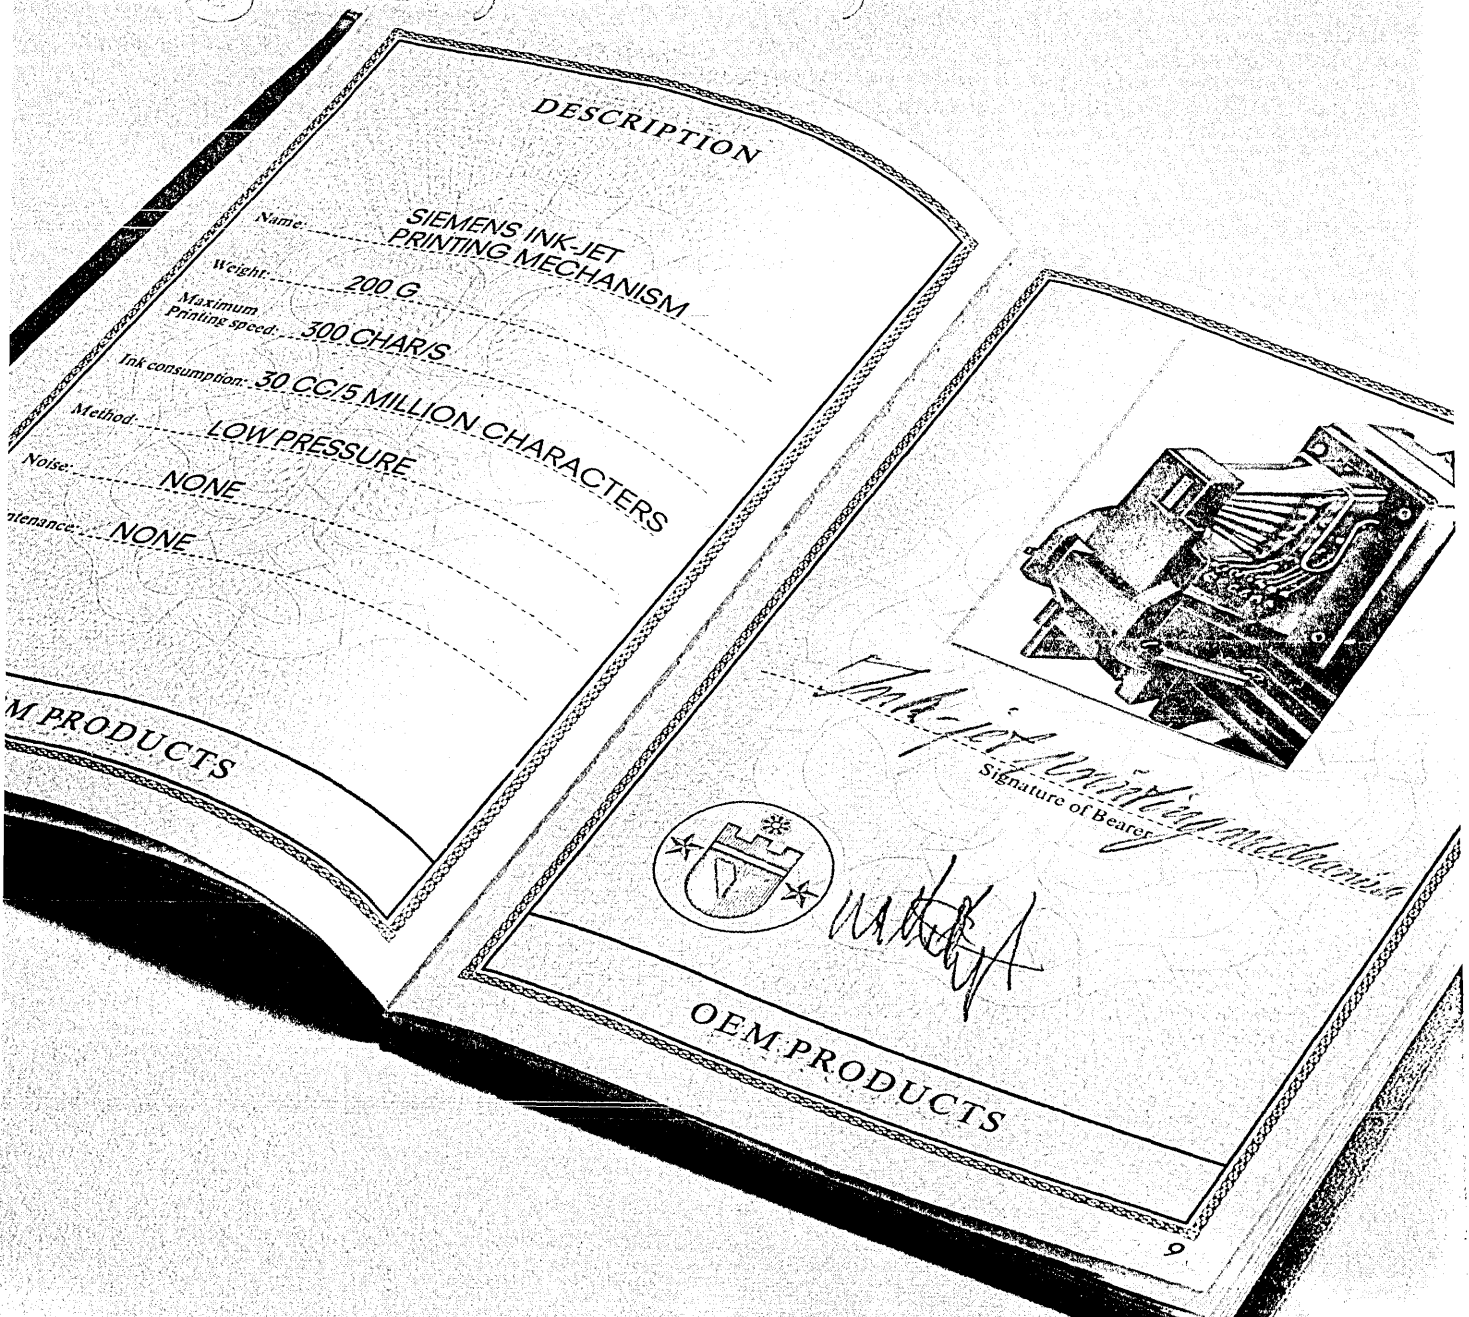 DESCRIPTION
Name: SIEMENS INK-JET
PRINTING MECHANISM
Weight: 200 G
Maximum
Printing speed: 300 CHAR/S
Ink consumption: 30 CC/5 MILLION CHARACTERS
Method: LOW PRESSURE
Noise: NONE
ntenance: NONE
M PRODUCTS
Ink-jet printing mechanism
Signature of Bearer
OEM PRODUCTS
9